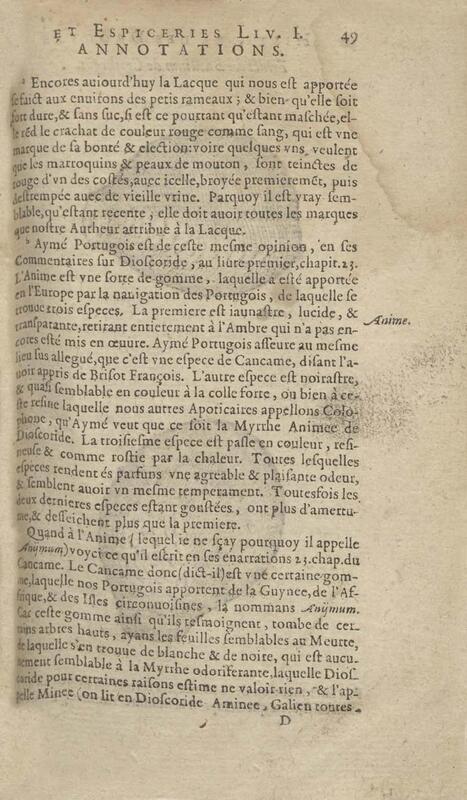 ET ESPICERIES LIV. I. 49
ANNOTATIONS.
ᵃ Encores auiourd'huy la Lacque qui nous est apportée
se faict aux enuirons des petis rameaux; & bien qu'elle soit
fort dure, & sans suc, si est ce pourtant qu'estant maschée, el-
le rẽd le crachat de couleur rouge comme sang, qui est vne
marque de sa bonté & election: voire quelques vns veulent
que les marroquins & peaux de mouton, sont teinctes de
rouge d'vn des costés, auec icelle, broyée premieremẽt, puis
destrempée auec de vieille vrine. Parquoy il est vray sem-
blable, qu'estant recente, elle doit auoir toutes les marques
que nostre Autheur attribue à la Lacque.
ᵇ Aymé Portugois est de ceste mesme opinion, en ses
Commentaires sur Dioscoride, au liure premier, chapit. 23.
L'Anime est vne sorte de gomme, laquelle a esté apportée
en l'Europe par la nauigation des Portugois, de laquelle se
trouue trois especes. La premiere est iaunastre, lucide, &
transparante, retirant entierement à l'Ambre qui n'a pas en-
cores esté mis en œuure. Aymé Portugois asseure au mesme
lieu sus allegué, que c'est vne espece de Cancame, disant l'a-
uoir appris de Brisot François. L'autre espece est noirastre,
& quasi semblable en couleur à la colle forte, ou bien à ce-
ste resine laquelle nous autres Apoticaires appellons Colo-
phone, qu'Aymé veut que ce soit la Myrrhe Animee de
Dioscoride. La troisiesme espece est pasle en couleur, resi-
neuse & comme rostie par la chaleur. Toutes lesquelles
especes rendent és parfuns vne agreable & plaisante odeur,
& semblent auoir vn mesme temperament. Toutesfois les
deux dernieres especes estant goustées, ont plus d'amertu-
me, & desseichent plus que la premiere.
Quand à l'Anime (lequel ie ne sçay pourquoy il appelle
Anijmum) voyci ce qu'il escrit en ses enarrations 23. chap. du
Cancame. Le Cancame donc (dict-il) est vne certaine gom-
me, laquelle nos Portugois apportent de la Guynee, de l'Af-
frique, & des Isles circonuoisines, la nommans Anijmum.
Car ceste gomme ainsi qu'ils tesmoignent, tombe de cer-
tains arbres hauts, ayans les feuilles semblables au Meurte,
de laquelle s'en trouue de blanche & de noire, qui est aucu-
nement semblable à la Myrrhe odoriferante, laquelle Dios-
coride pour certaines raisons estime ne valoir rien, & l'ap-
pelle Minee (on lit en Dioscoride Aminee, Galien toutes-
D
Anime.